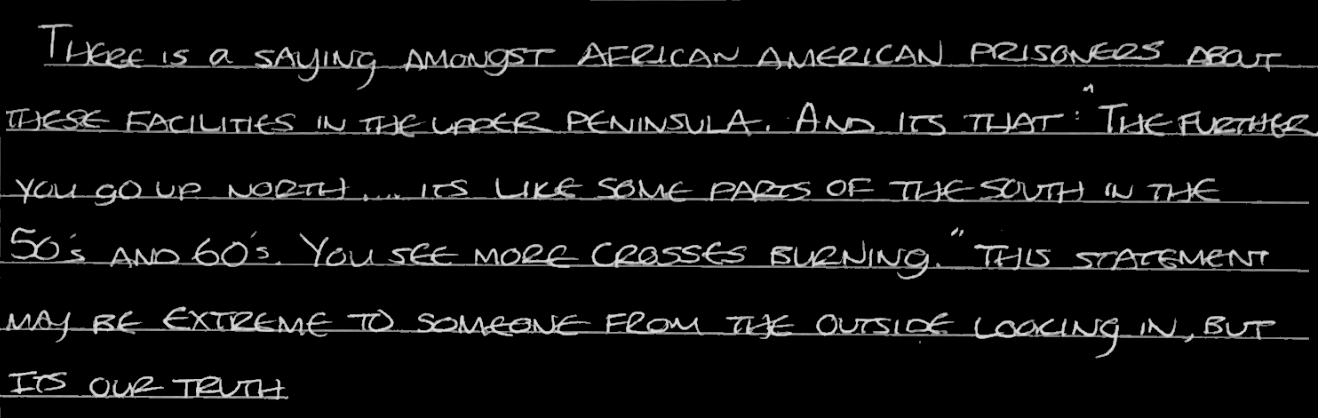 THERE IS A SAYING AMONGST AFRICAN AMERICAN PRISONERS ABOUT
THESE FACILITIES IN THE UPPER PENINSULA. AND ITS THAT: "THE FURTHER
YOU GO UP NORTH.... ITS LIKE SOME PARTS OF THE SOUTH IN THE
50's AND 60's. YOU SEE MORE CROSSES BURNING." THIS STATEMENT
MAY BE EXTREME TO SOMEONE FROM THE OUTSIDE LOOKING IN, BUT
ITS OUR TRUTH